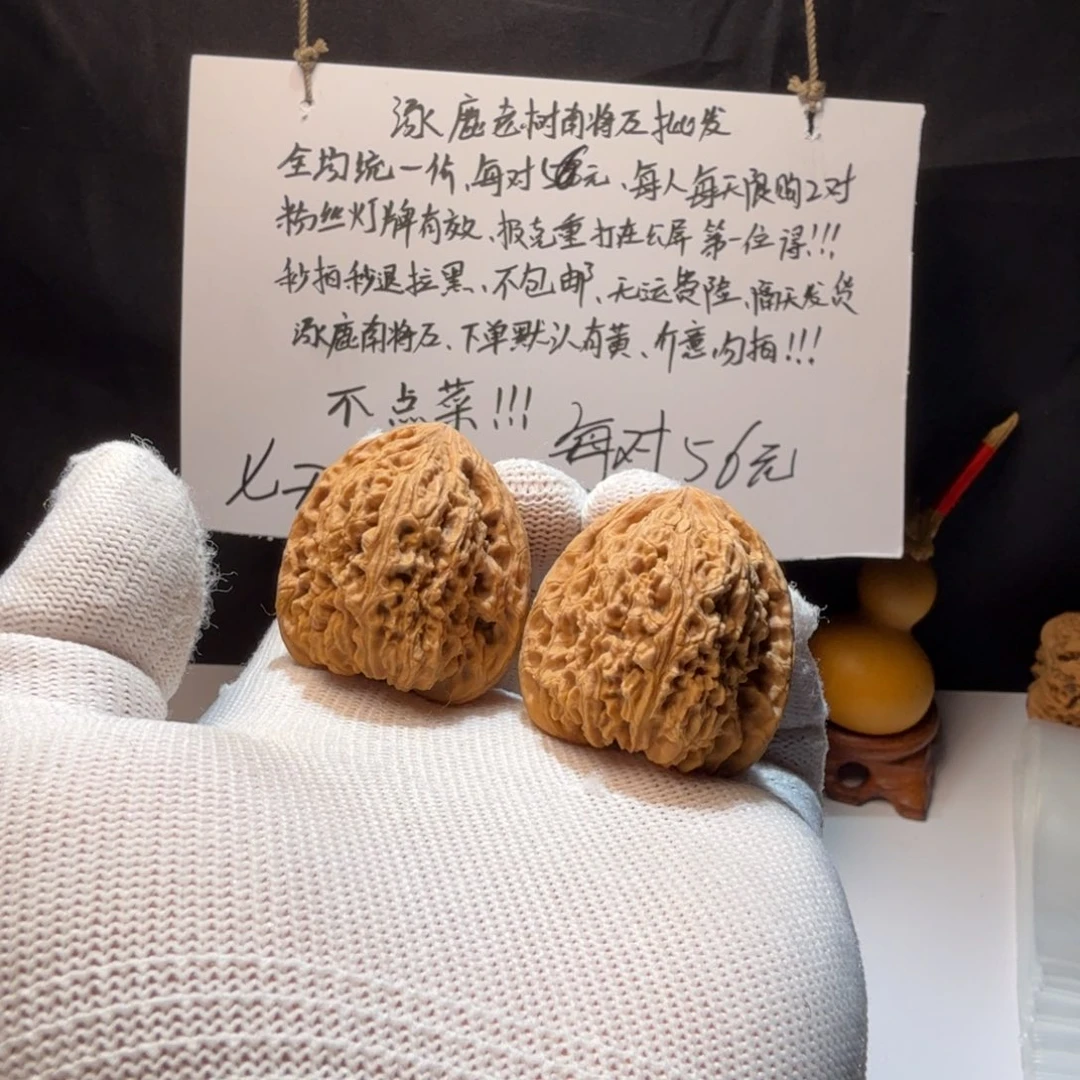 涿鹿老树南将石批发
全均统一价、每对56元、每人每天限购2对
粉丝灯牌有效、报克重打在公屏第一位得!!!
秒拍秒退拉黑、不包邮、无运费险、隔天发货
涿鹿南将石、下单默认有黄、介意勿拍!!!
不点菜!!!
每对56元